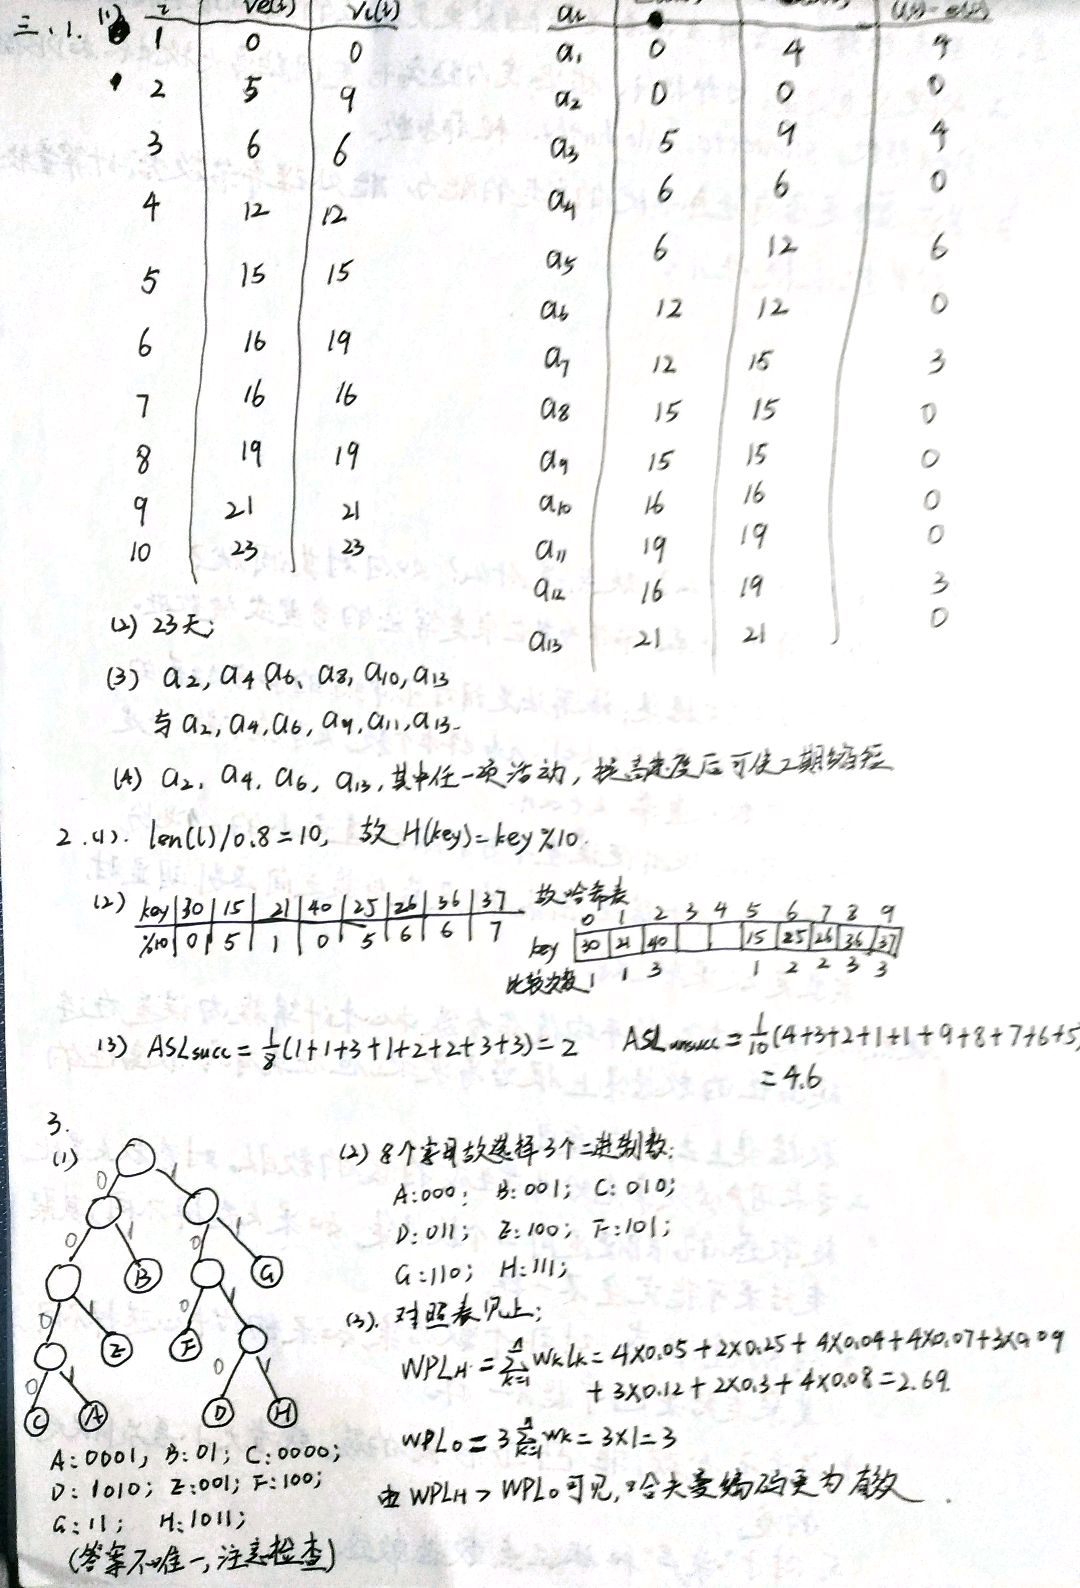 三、1. (1) i Ve(i) Vl(i)
1 0 0
2 5 9
3 6 6
4 12 12
5 15 15
6 16 19
7 16 16
8 19 19
9 21 21
10 23 23
ai
a1 0 4 4
a2 0 0 0
a3 5 9 4
a4 6 6 0
a5 6 12 6
a6 12 12 0
a7 12 15 3
a8 15 15 0
a9 15 15 0
a10 16 16 0
a11 19 19 0
a12 16 19 3
a13 21 21 0
(2) 23天;
(3) a2, a4, a6, a8, a10, a13
与 a2, a4, a6, a9, a11, a13.
(4) a2, a4, a6, a13, 其中任一项活动, 提高速度后可使工期缩短
2. (1). len(l)/0.8=10, 故 H(key)=key%10.
(2) key 30 15 21 40 25 26 36 37
%10 0 5 1 0 5 6 6 7
故哈希表
0 1 2 3 4 5 6 7 8 9
key 30 21 40 15 25 26 36 37
比较次数 1 1 3 1 2 2 3 3
(3) ASLsucc = 1/8(1+1+3+1+2+2+3+3)=2 ASLunsucc = 1/10(4+3+2+1+1+9+8+7+6+5)
=4.6
3.
(1)
0 1
0 1 0 1
B G
0 1 0 1
E F
0 1 0 1
C A D H
A:0001, B:01; C:0000;
D:1010; E:001; F:100;
G:11; H:1011;
(答案不唯一,注意检查)
(2) 8个字母故选择3个二进制数;
A:000; B:001; C:010;
D:011; E:100; F:101;
G:110; H:111;
(3). 对照表见上;
WPLH = Σ k=1 n wklk = 4×0.05+2×0.25+4×0.04+4×0.07+3×0.09
+3×0.12+2×0.3+4×0.08=2.69.
WPL0 = 3 Σ k=1 n wk = 3×1=3
由 WPLH > WPL0 可见, 哈夫曼编码更为有效.